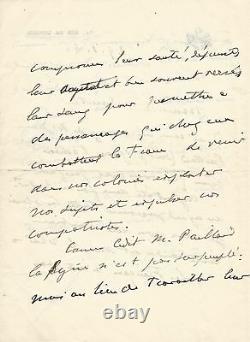 compromis leur santé,
leur et bien souvent versé
leur sang pour permettre à
des personnages qui chez eux
combattent la France de venir
dans nos colonies exploiter
nos sujets et expulser nos
compatriotes.
Comme l'a dit M.
la n'est pas surpeuplée
mais au lieu de travailler leur